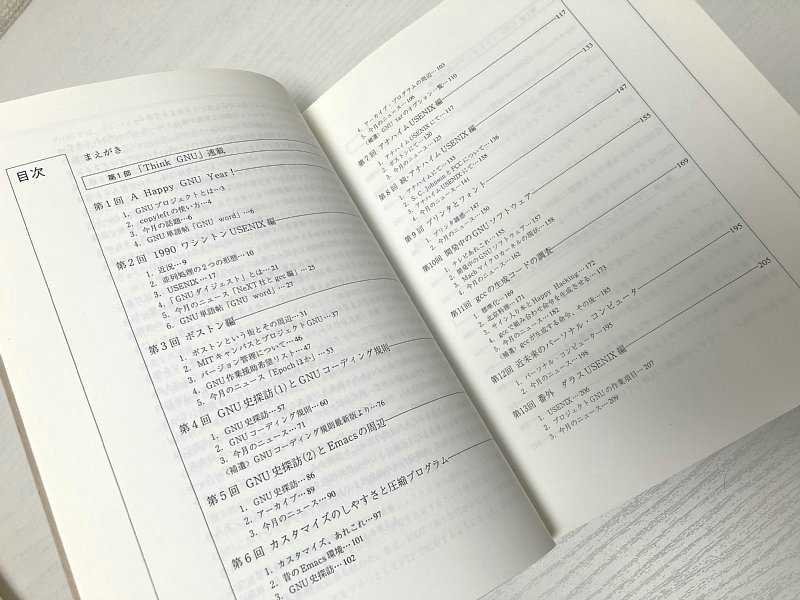 目次
まえがき
第1部 「Think GNU」連載
第1回 A Happy GNU Year!
1. GNUプロジェクトとは…3
2. copyleftの使い方…4
3. 今月の話題…6
4. GNU単語帖「GNU word」…6
第2回 1990 ワシントンUSENIX編
1. 近況…9
2. 並列処理の2つの形態…10
3. USENIX…17
4. 「GNUダイジェスト」とは…21
5. 今月のニュース「NeXT社とgcc編」…25
6. GNU単語帖「GNU word」…27
第3回 ボストン編
1. ボストンという街とその周辺…31
2. MITキャンパスとプロジェクトGNU…37
3. バージョン管理について…46
4. GNU作業援助希望リスト…47
5. 今月のニュース「Epochほか」…53
第4回 GNU史探訪(1)とGNUコーディング規則
1. GNU史探訪…57
2. GNUコーディング規則…60
3. 今月のニュース…71
〈補遺〉GNUコーディング規則最新版より…76
第5回 GNU史探訪(2)とEmacsの周辺
1. GNU史探訪…86
2. アーカイブ…89
3. 今月のニュース…90
第6回 カスタマイズのしやすさと圧縮プログラム
1. カスタマイズ、あれこれ…97
2. 昔のEmacs環境…101
3. GNU史探訪…102
4. アーカイブ・プログラムの周辺…103
5. 今月のニュース…106
〈補遺〉GNU tarのオプション一覧…110
第7回 アナハイムUSENIX編 117
1. アナハイムUSENIXにて…117
2. ボストンにて…120
3. 今月のニュース…125
第8回 続、アナハイムUSENIX編 133
1. アナハイムにて…133
2. S. C. JohnsonとPCCについて…135
3. アナハイムUSENIXにて…138
4. 今月のニュース…141
第9回 プリンタとフォント 147
1. プリンタ雑感…147
2. 今月のニュース…150
第10回 開発中のGNUソフトウェア 155
1. テレビあれこれ…155
2. 開発中のGNUソフトウェア…157
3. Machマイクロカーネルの現状…158
4. 今月のニュース…162
第11回 gccの生成コードの調査 169
1. 標準化…169
2. 北京料理…171
3. サイン入り本とHappy Hacking…172
4. gccで組み合わせ命令を生成させる…173
5. 今月のニュース…182
〈補遺〉gccが生成する命令、その後…185
第12回 近未来のパーソナル・コンピュータ 195
1. パーソナル・コンピュータ…195
2. 今月のニュース…198
第13回 番外 ダラスUSENIX編 205
1. USENIX…206
2. プロジェクトGNUの作業項目…207
3. 今月のニュース…209